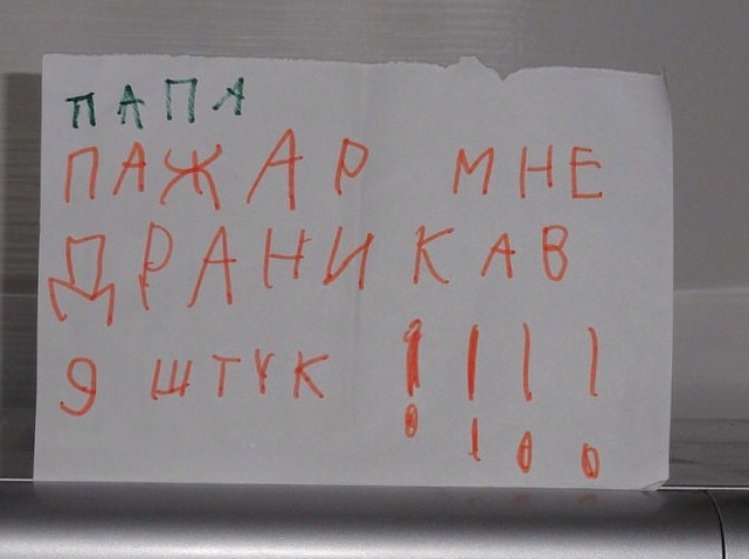 ПАПА
ПАЖАР МНЕ
ДРАНИКАВ
9 ШТУК !!!!